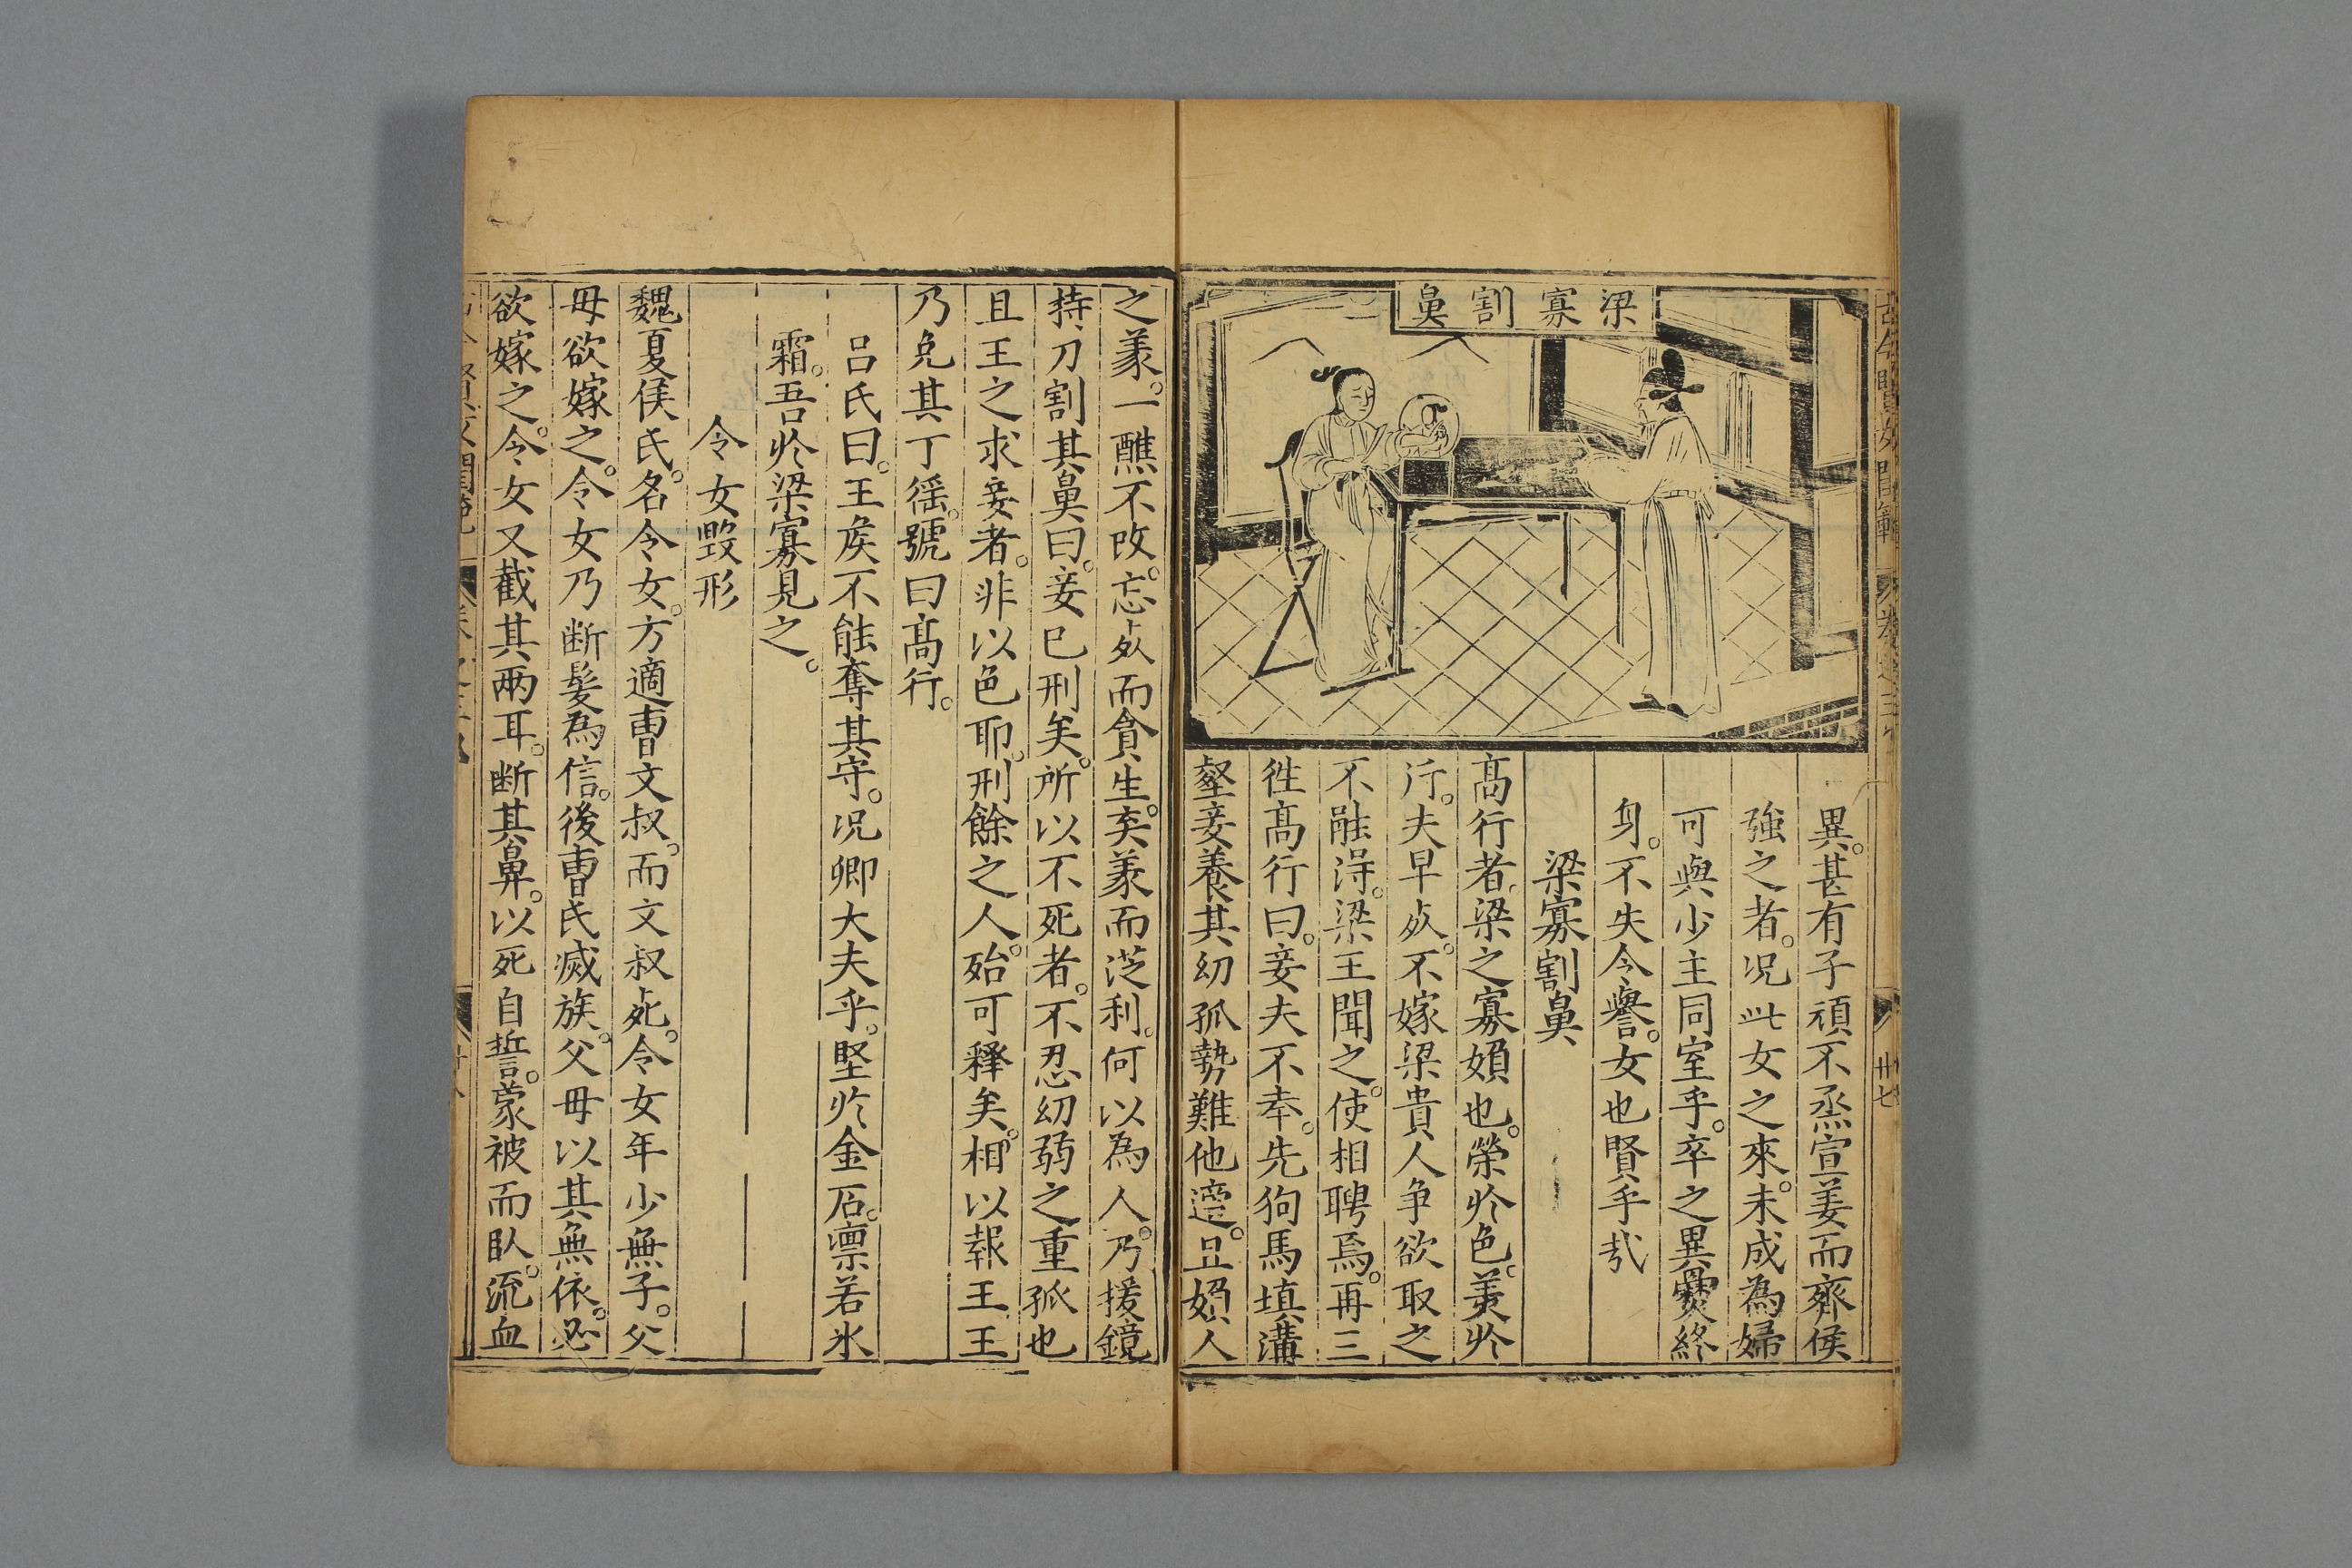 梁寡割鼻
異。甚有子頑不烝宣姜而齊侯
強之者。况此女之來。未成為婦
可與少主同室乎。卒之異㸑終
身。不失令譽。女也賢乎㢤
梁寡割鼻
髙行者。梁之寡婦也。榮於色。美於
行。夫早死。不嫁梁貴人争欲取之
不能得。梁王聞之。使相聘焉。再三
徃髙行曰。妾夫不幸。先狗馬填溝
壑妾養其幼孤勢難他適。且婦人
之義。一醮不改。忘死而貪生。棄義而從利。何以為人。乃援鏡
持刀割其鼻曰。妾已刑矣。所以不死者。不忍幼弱之重孤也
且王之求妾者。非以色耶。刑餘之人。殆可釋矣。相以報王王
乃免其丁徭。號曰髙行。
吕氏曰。王侯不能奪其守。况卿大夫乎。堅於金石。凛若氷
霜。吾於梁寡見之。
令女毀形
魏夏侯氏。名令女。方適曹文叔。而文叔死。令女年少無子。父
母欲嫁之。令女乃断髪為信。後曹氏滅族。父母以其無依。必
欲嫁之。令女又截其兩耳。断其鼻。以死自誓。蒙被而臥。流血